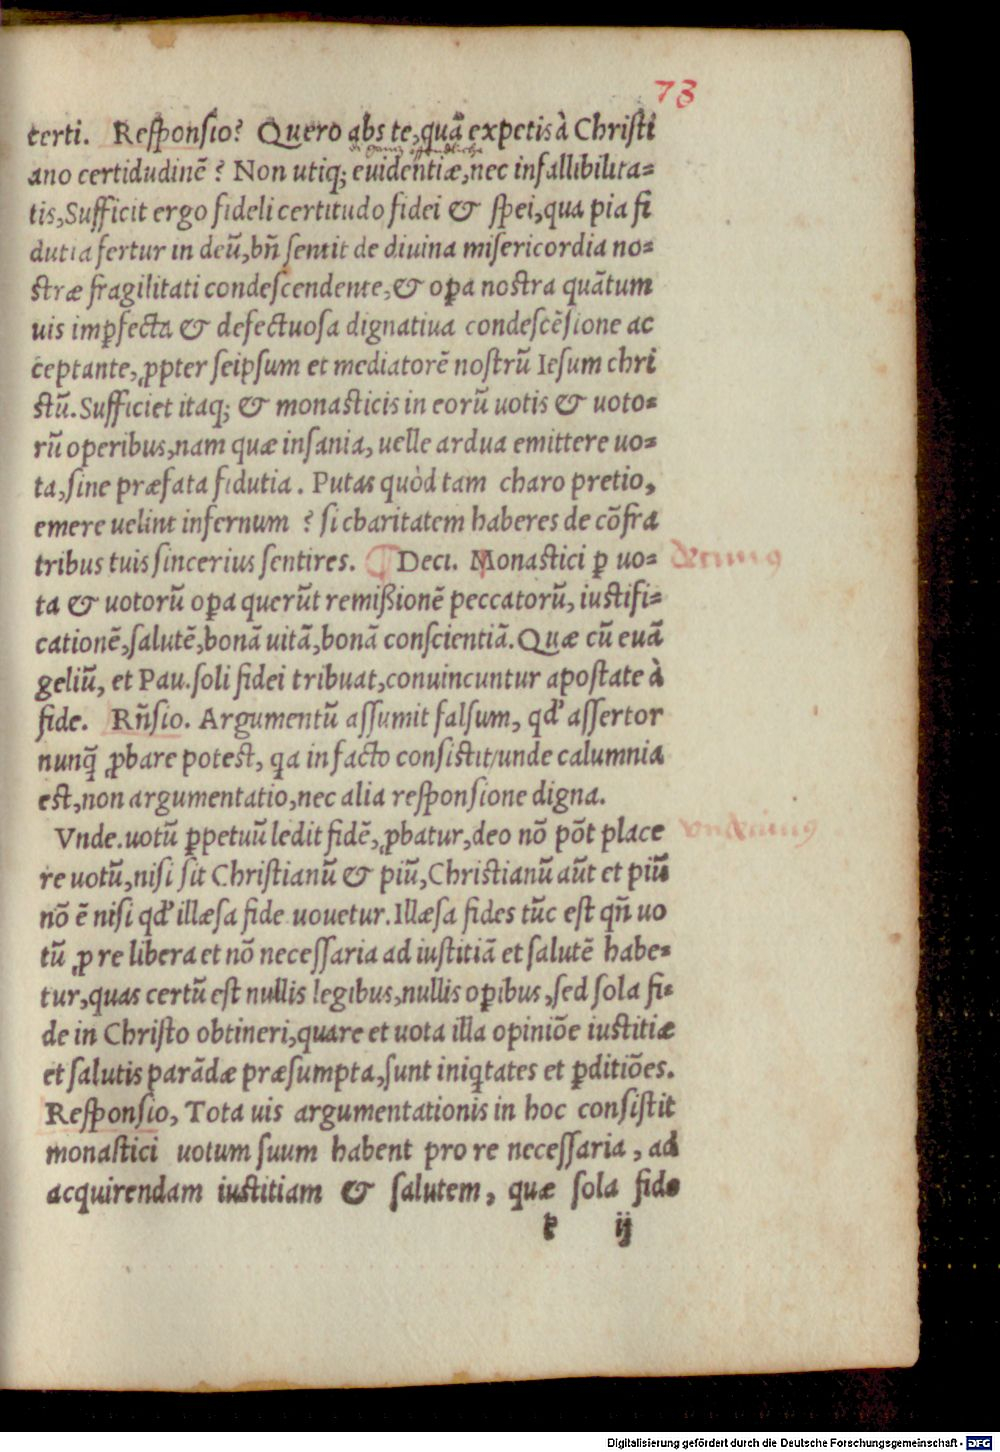 73
certi. Responsio? Quero abs te, quã expetis à Christi
ano certidudinē? Non utiq; euidentiæ, nec infallibilita=
tis, Sufficit ergo fideli certitudo fidei & spei, qua pia fi
dutia fertur in deū, bñ sentit de diuina misericordia no=
stræ fragilitati condescendente, & oꝑa nostra quãtum
uis imꝑfecta & defectuosa dignatiua condescēsione ac
ceptante, ꝓpter seipsum et mediatorē nostrū Iesum chri
stū. Sufficiet itaq; & monasticis in eorū uotis & uoto=
rū operibus, nam quæ insania, uelle ardua emittere uo=
ta, sine præfata fidutia. Putas quòd tam charo pretio,
emere uelint infernum? si charitatem haberes de cõfra
tribus tuis sincerius sentires. Deci. Monastici ꝑ uo=
decimus
ta & uotorū oꝑa querūt remißionē peccatorū, iustifi=
cationē, salutē, bonã uitã, bonã conscientiã. Quæ cū euã
geliū, et Pau. soli fidei tribuat, conuincuntur apostate à
fide. Rñsio. Argumentū assumit falsum, qđ assertor
nunq̃ ꝓbare potest, qa in facto consistit/unde calumnia
est, non argumentatio, nec alia responsione digna.
Vnde. uotū ꝑpetuū ledit fidē, ꝓbatur, deo nõ põt place
undecimus
re uotū, nisi sit Christianū & piū, Christianū aūt et piū
nõ ē nisi qđ illæsa fide uouetur. Illæsa fides tūc est qñ uo
tū ꝓ re libera et nõ necessaria ad iustitiã et salutē habe=
tur, quas certū est nullis legibus, nullis oꝑibus, sed sola fi=
de in Christo obtineri, quare et uota illa opiniõe iustitiæ
et salutis parãdæ præsumpta, sunt iniq̃tates et ꝑditiões.
Responsio, Tota uis argumentationis in hoc consistit
monastici uotum suum habent pro re necessaria, ad
acquirendam iustitiam & salutem, quæ sola fide
k ij
Digitalisierung gefördert durch die Deutsche Forschungsgemeinschaft - DFG